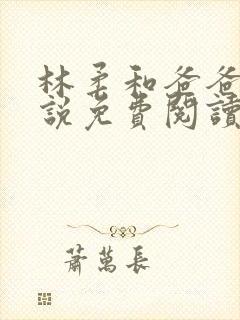 林柔和爸爸
說免費閱讀
蕭萬長